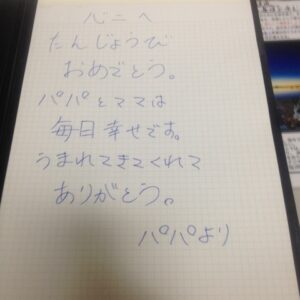 心二へ
たんじょうび
おめでとう。
パパとママは
毎日幸せです。
うまれてきてくれて
ありがとう。
パパより